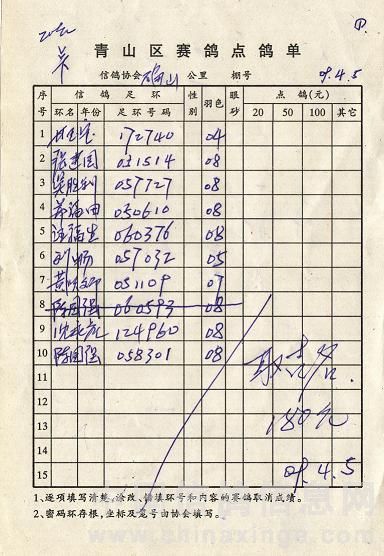 ①.
青山区赛鸽点鸽单
信鸽协会 确山 公里 棚号 09.4.5
序号 信鸽足环 性别 羽色 眼砂 点鸽(元)
环名 年份 足环号码 20 50 100 其它
1 172740 04
2 张建国 031514 08
3 吴胜利 057727 08
4 030610 08
5 汪福生 060376 08
6 刘 057032 05
7 黄 031109 07
8 陈国强 060593 08
9 沈 124960 08
10 陈国强 058301 08
11
12
13
14
15
180元
09.4.5
1、逐项填写清楚,涂改、错填环号和内容的赛鸽取消成绩。
2、密码环存根,坐标及笼号由协会填写。
中国信鸽信息网
www.chinaxinge.com